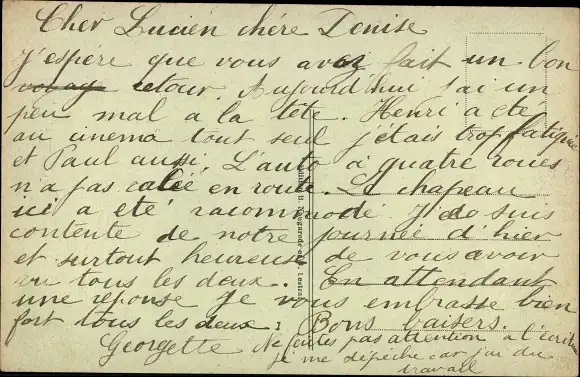 Cher Lucien chère Denise
J'espère que vous avez fait un bon
voyage retour. Aujourd'hui j'ai un
peu mal a la tête. Henri a été
au cinema tout seul j'étais trop fatiguée
et Paul aussi. L'auto a quatre roues
n'a pas calée en route. Le chapeau
ici a été racommodé. Je suis
contente de notre journée d'hier
et surtout heureuse de vous avoir
vu tous les deux. En attendant
une réponse je vous embrasse bien
fort tous les deux : Bons baisers.
Georgette Ne faites pas attention a l'écriture
je me dépêche car j'ai du
travail